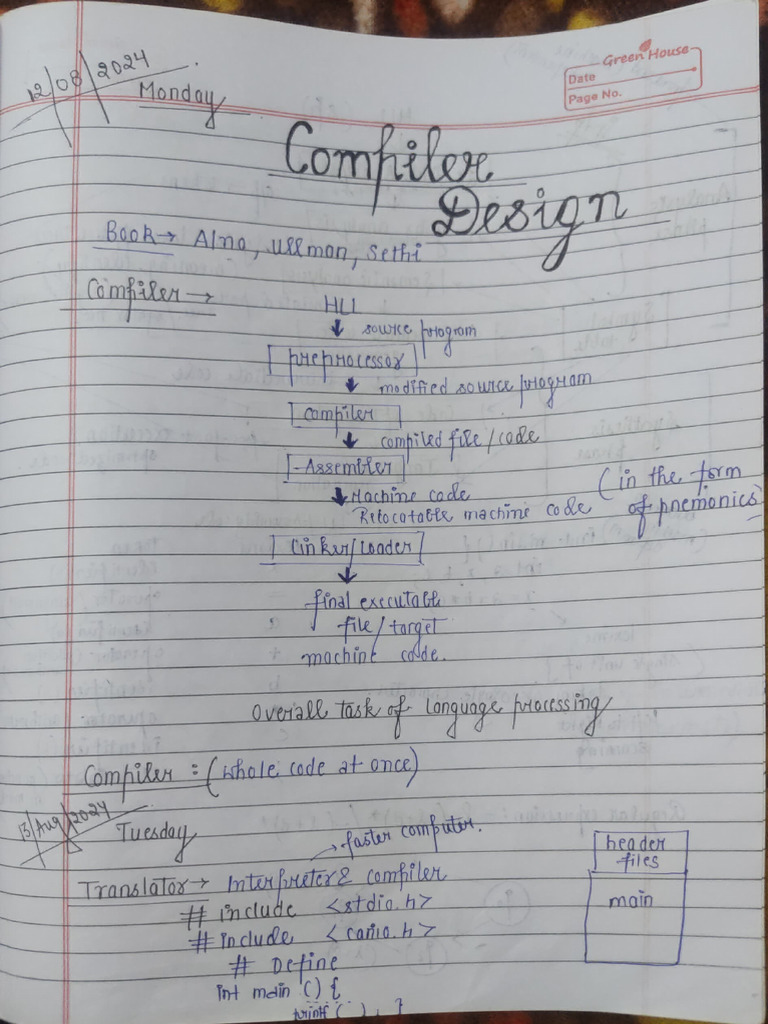 12/08/2024
Monday
Green House
Date
Page No.
Compiler
Design
Book → Alno, Ullman, Sethi
Compiler →
HLL
↓ source program
preprocessor
↓ modified source program
Compiler
↓ compiled file/code
Assembler
↓ Machine code
Relocatable machine code (in the form of pnemonics)
Linker/Loader
↓
final executable
file/target
machine code.
Overall task of language processing
Compiler : (whole code at once)
13/Aug/2024
Tuesday
→ faster computer.
Translator → Interpreter & compiler
# include <stdio.h>
# include <conio.h>
# Define
int main () {
printf ( ) , }
header
files
main